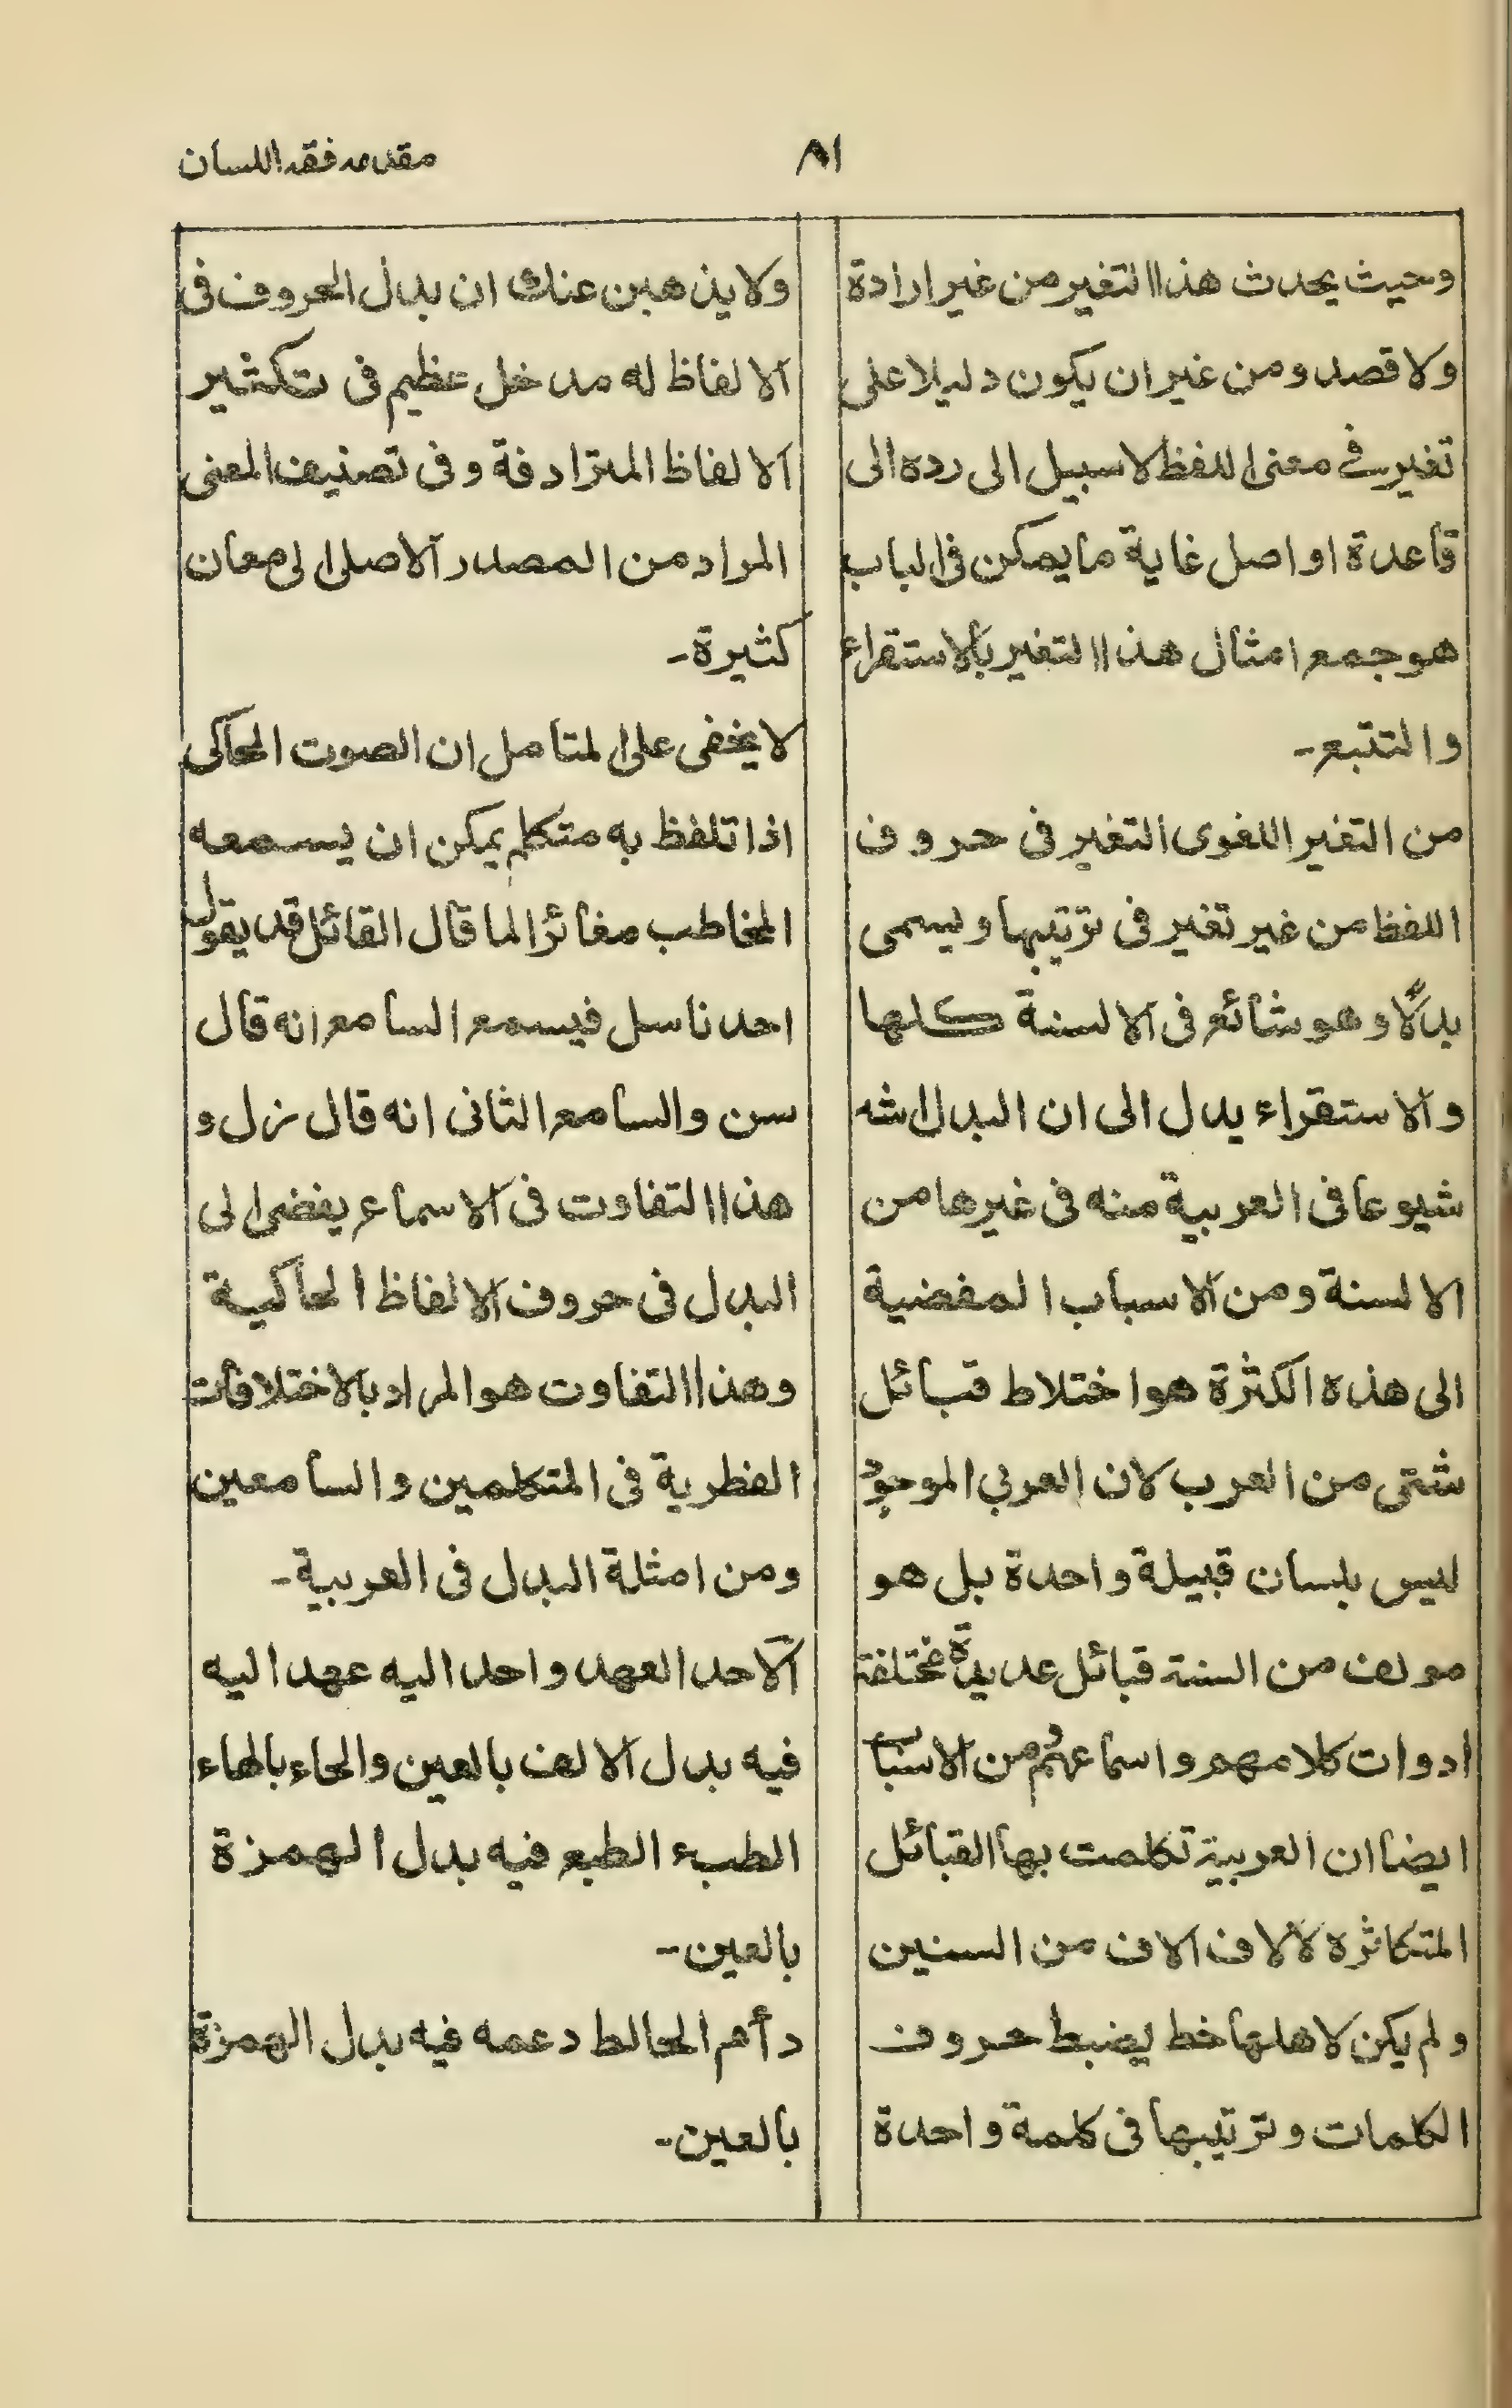 مقدمه فقه اللسان
٨١
وحيث يحدث هذا التغير من غير ارادة
ولا قصد ومن غير ان يكون دليلا على
تغير فى معنى اللفظ لا سبيل الى رده الى
قاعدة او اصل غاية ما يمكن فى الباب
هو جمع امثال هذا التغير بالاستقراء
والتتبع-
من التغير اللغوى التغير فى حروف
اللفظ من غير تغير فى ترتيبها ويسمى
بدلًا وهو شائع فى الالسنة كلها
والاستقراء يدل الى ان البدل اشد
شيوعا فى العربية منه فى غيرها من
الالسنة ومن الاسباب المفضية
الى هذه الكثرة هو اختلاط قبائل
شتى من العرب لان العربي الموجود
ليس بلسان قبيلة واحدة بل هو
مولف من السنة قبائل عديدة مختلفة
ادوات كلامهم واسماعهم ومن الاسباب
ايضا ان العربية تكلمت بها القبائل
المتكاثرة لالاف الاف من السنين
ولم يكن لاهلها خط يضبط حروف
الكلمات وترتيبها فى كلمة واحدة
ولا يذهبن عنك ان بدل الحروف فى
الالفاظ له مدخل عظيم فى تكثير
الالفاظ المترادفة وفى تصنيف المعنى
المراد من المصدر الاصلى الى معان
كثيرة-
لا يخفى على المتامل ان الصوت الحاكى
اذا تلفظ به متكلم يمكن ان يسمعه
المخاطب مغائرًا لما قال القائل قد يقول
احدنا سل فيسمع السامع انه قال
سن والسامع الثانى انه قال زل و
هذا التفاوت فى الاسماع يفضى الى
البدل فى حروف الالفاظ الحاكية
وهذا التفاوت هو المراد بالاختلافات
الفطرية فى المتكلمين والسامعين
ومن امثلة البدل فى العربية-
الاحد العهد واحد اليه عهد اليه
فيه بدل الالف بالعين والحاء بالهاء
الطبء الطبع فيه بدل الهمزة
بالعين-
دأم الحائط دعمه فيه بدل الهمزة
بالعين-